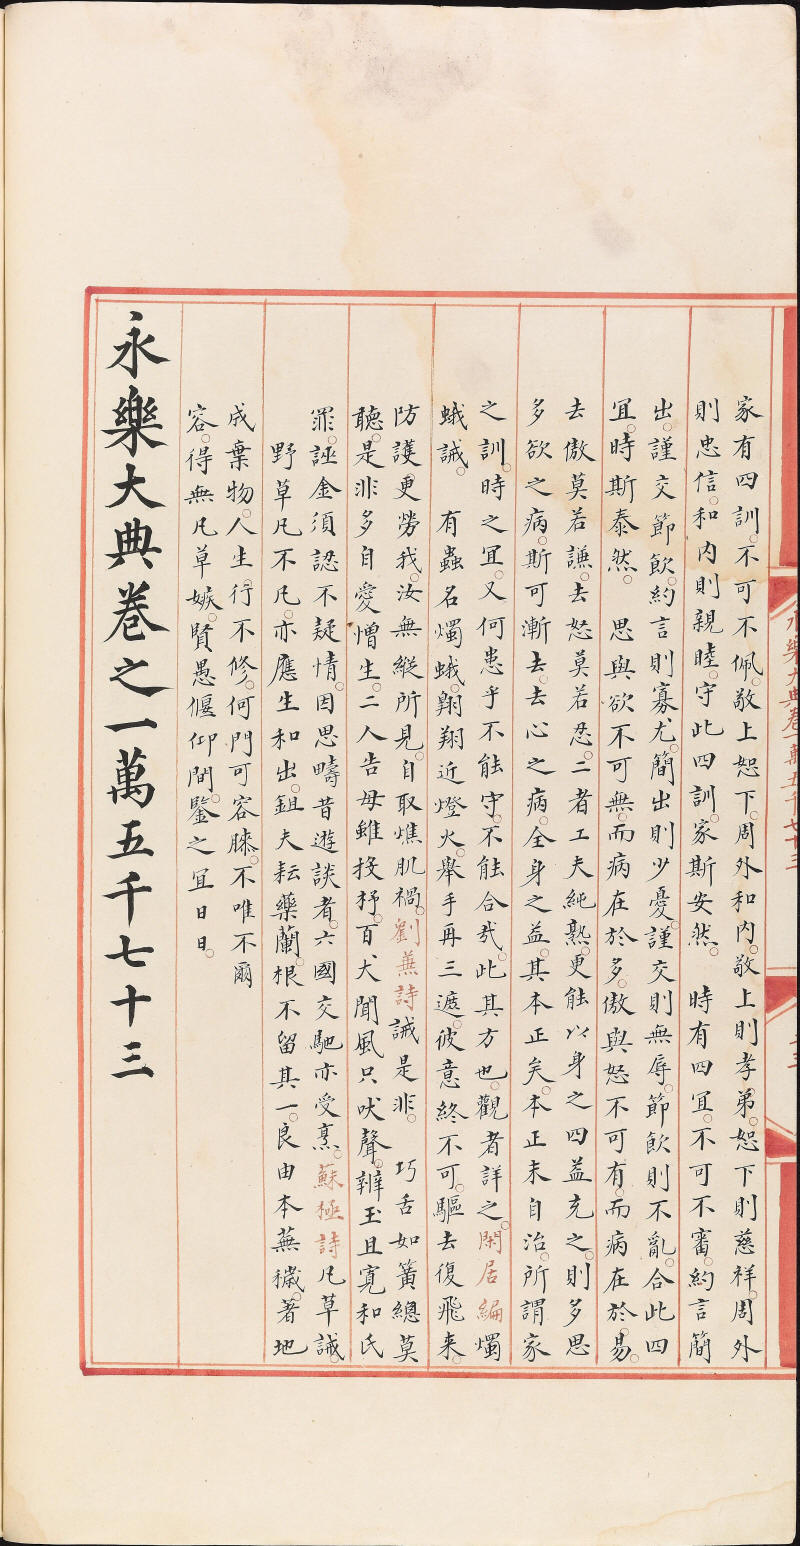 家有四訓。不可不佩。敬上恕下。周外和内。敬上則孝弟。恕下則慈祥。周外
則忠信。和内則親睦。守此四訓。家斯安然。　時有四宜。不可不審。約言簡
出。謹交節飲。約言則寡尤。簡出則少憂。謹交則無辱。節飲則不亂。合此四
宜。時斯泰然。　思與欲不可無。而病在於多。傲與怒不可有。而病在於易。
去傲莫若謙。去怒莫若忍。二者工夫純熟。更能以身之四益充之。則多思
多欲之病。斯可漸去。去心之病。全身之益。其本正矣。本正末自治。所謂家
之訓。時之宜。又何患乎不能守。不能合㢤。此其方也。觀者詳之。閑居編燭
蛾誡。　有蟲名燭蛾。翱翔近燈火。舉手再三遮。彼意終不可。驅去復飛来。
防護更勞我。汝無縱所見。自取燋肌禍。劉黃詩誡是非。　巧舌如簧總莫
聽。是非多自愛憎生。二人告母雖投杼。百犬聞風只吠聲。辨玉且寛和氏
罪。誣金須認不疑情。因思疇昔遊談者。六國交馳亦受烹。蘇極詩凡草誡。
野草凡不凡。亦應生和出。鉏夫耘藥蘭。根不留其一。良由本蕪穢。著地
成棄物。人生行不修。何門可容膝。不唯不爾
容。得無凡草嫉。賢愚偃仰間。鑒之宜日日。
永樂大典卷之一萬五千七十三